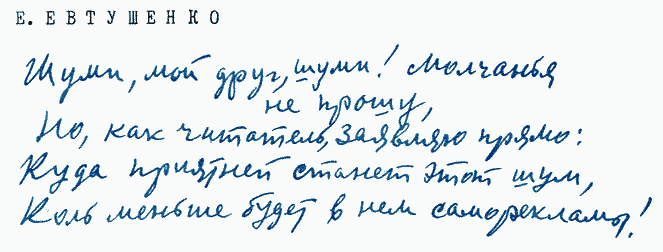 Е. ЕВТУШЕНКО
Шуми, мой друг, шуми! Молчанья
не прошу,
Но, как читатель, заявляю прямо:
Куда приятней станет этот шум,
Коль меньше будет в нем саморекламы!